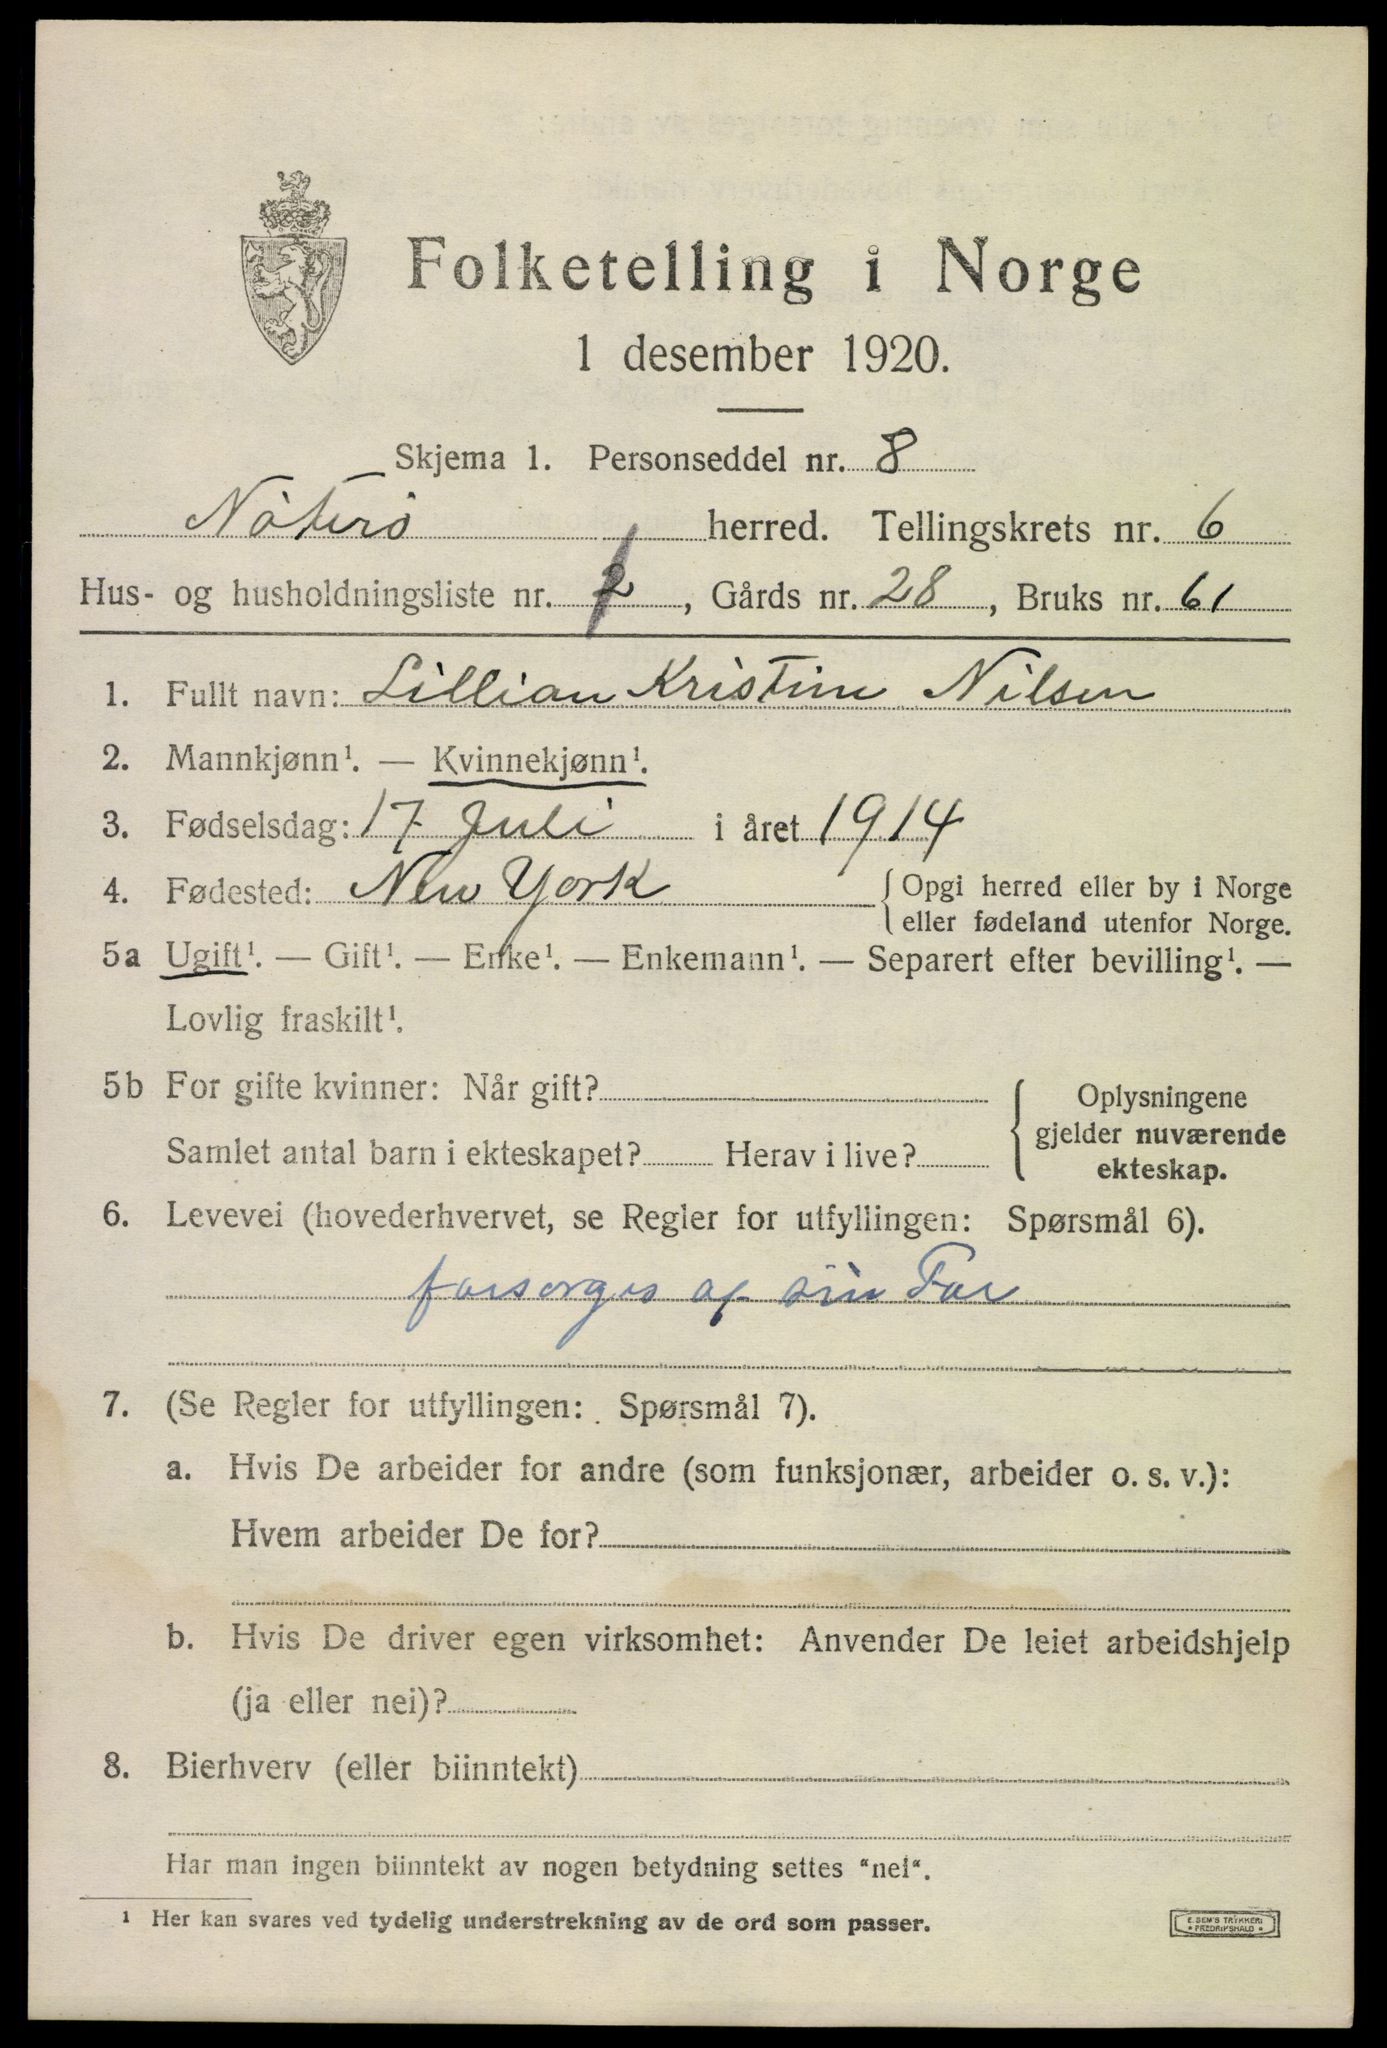 Folketelling i Norge
1 desember 1920.
Skjema 1. Personseddel nr. 8
Nöterö herred. Tellingskrets nr. 6
Hus- og husholdningsliste nr. , Gårds nr. 28, Bruks nr. 61
1. Fullt navn: Lillian Kristine Nilsen
2. Mannkjønn¹. — Kvinnekjønn¹.
3. Fødselsdag: 17 Juli i året 1914
4. Fødested: New York { Opgi herred eller by i Norge
eller fødeland utenfor Norge.
5a Ugift¹. — Gift¹. — Enke¹. — Enkemann¹. — Separert efter bevilling¹. —
Lovlig fraskilt¹.
5b For gifte kvinner: Når gift?
Samlet antal barn i ekteskapet? Herav i live?
{ Oplysningene
gjelder nuværende
ekteskap.
6. Levevei (hovederhvervet, se Regler for utfyllingen: Spørsmål 6).
forsorges af sin Far
7. (Se Regler for utfyllingen: Spørsmål 7).
a. Hvis De arbeider for andre (som funksjonær, arbeider o. s. v.):
Hvem arbeider De for?
b. Hvis De driver egen virksomhet: Anvender De leiet arbeidshjelp
(ja eller nei)?
8. Bierhverv (eller biinntekt)
Har man ingen biinntekt av nogen betydning settes "nei".
¹ Her kan svares ved tydelig understrekning av de ord som passer.
E. SEM'S TRYKKERI
* FREDRIKSHALD *